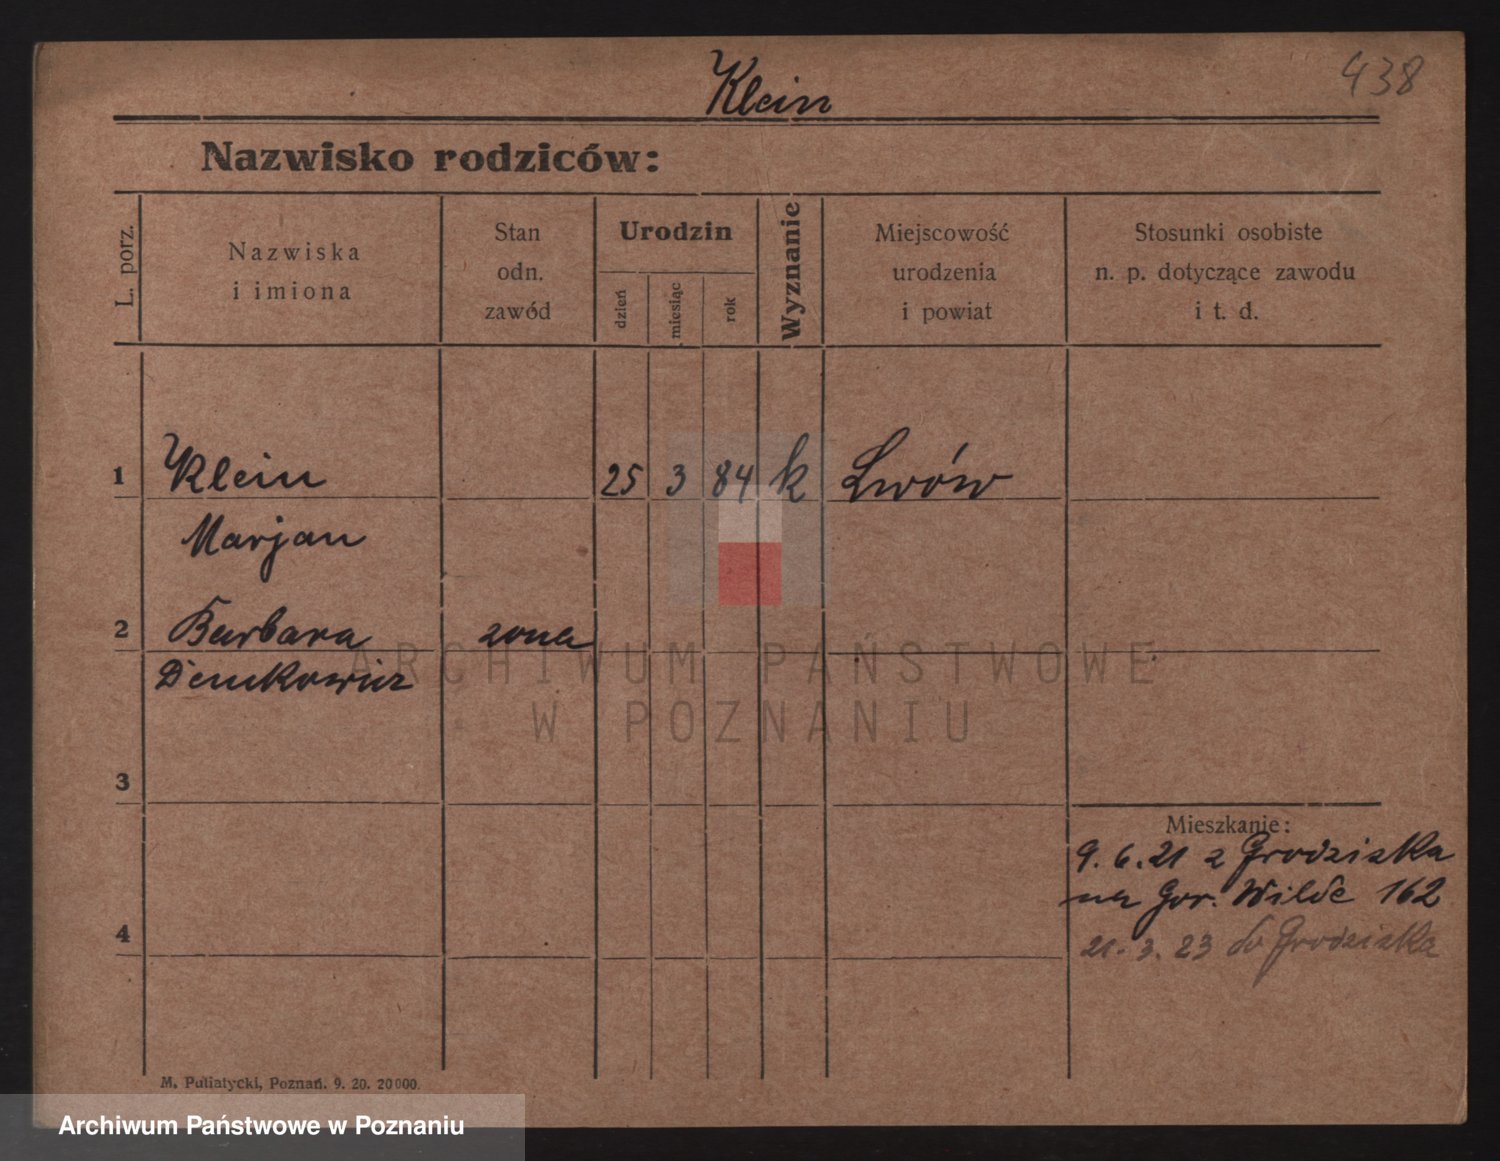 438
Klein
Nazwisko rodziców:
L. porz.
Nazwiska
i imiona
Stan
odn.
zawód
Urodzin
dzień
miesiąc
rok
Wyznanie
Miejscowość
urodzenia
i powiat
Stosunki osobiste
n. p. dotyczące zawodu
i t. d.
1 Klein 25 3 84 k Lwów
Marjan
2 Barbara zona
Demkowicz
ARCHIWUM PAŃSTWOWE
W POZNANIU
3
Mieszkanie:
9. 6. 21 z Grodziska
na Gor. Wilde 162
4
21. 3. 23 do Grodziska
M. Putiatycki, Poznań. 9. 20. 20000.
Archiwum Państwowe w Poznaniu